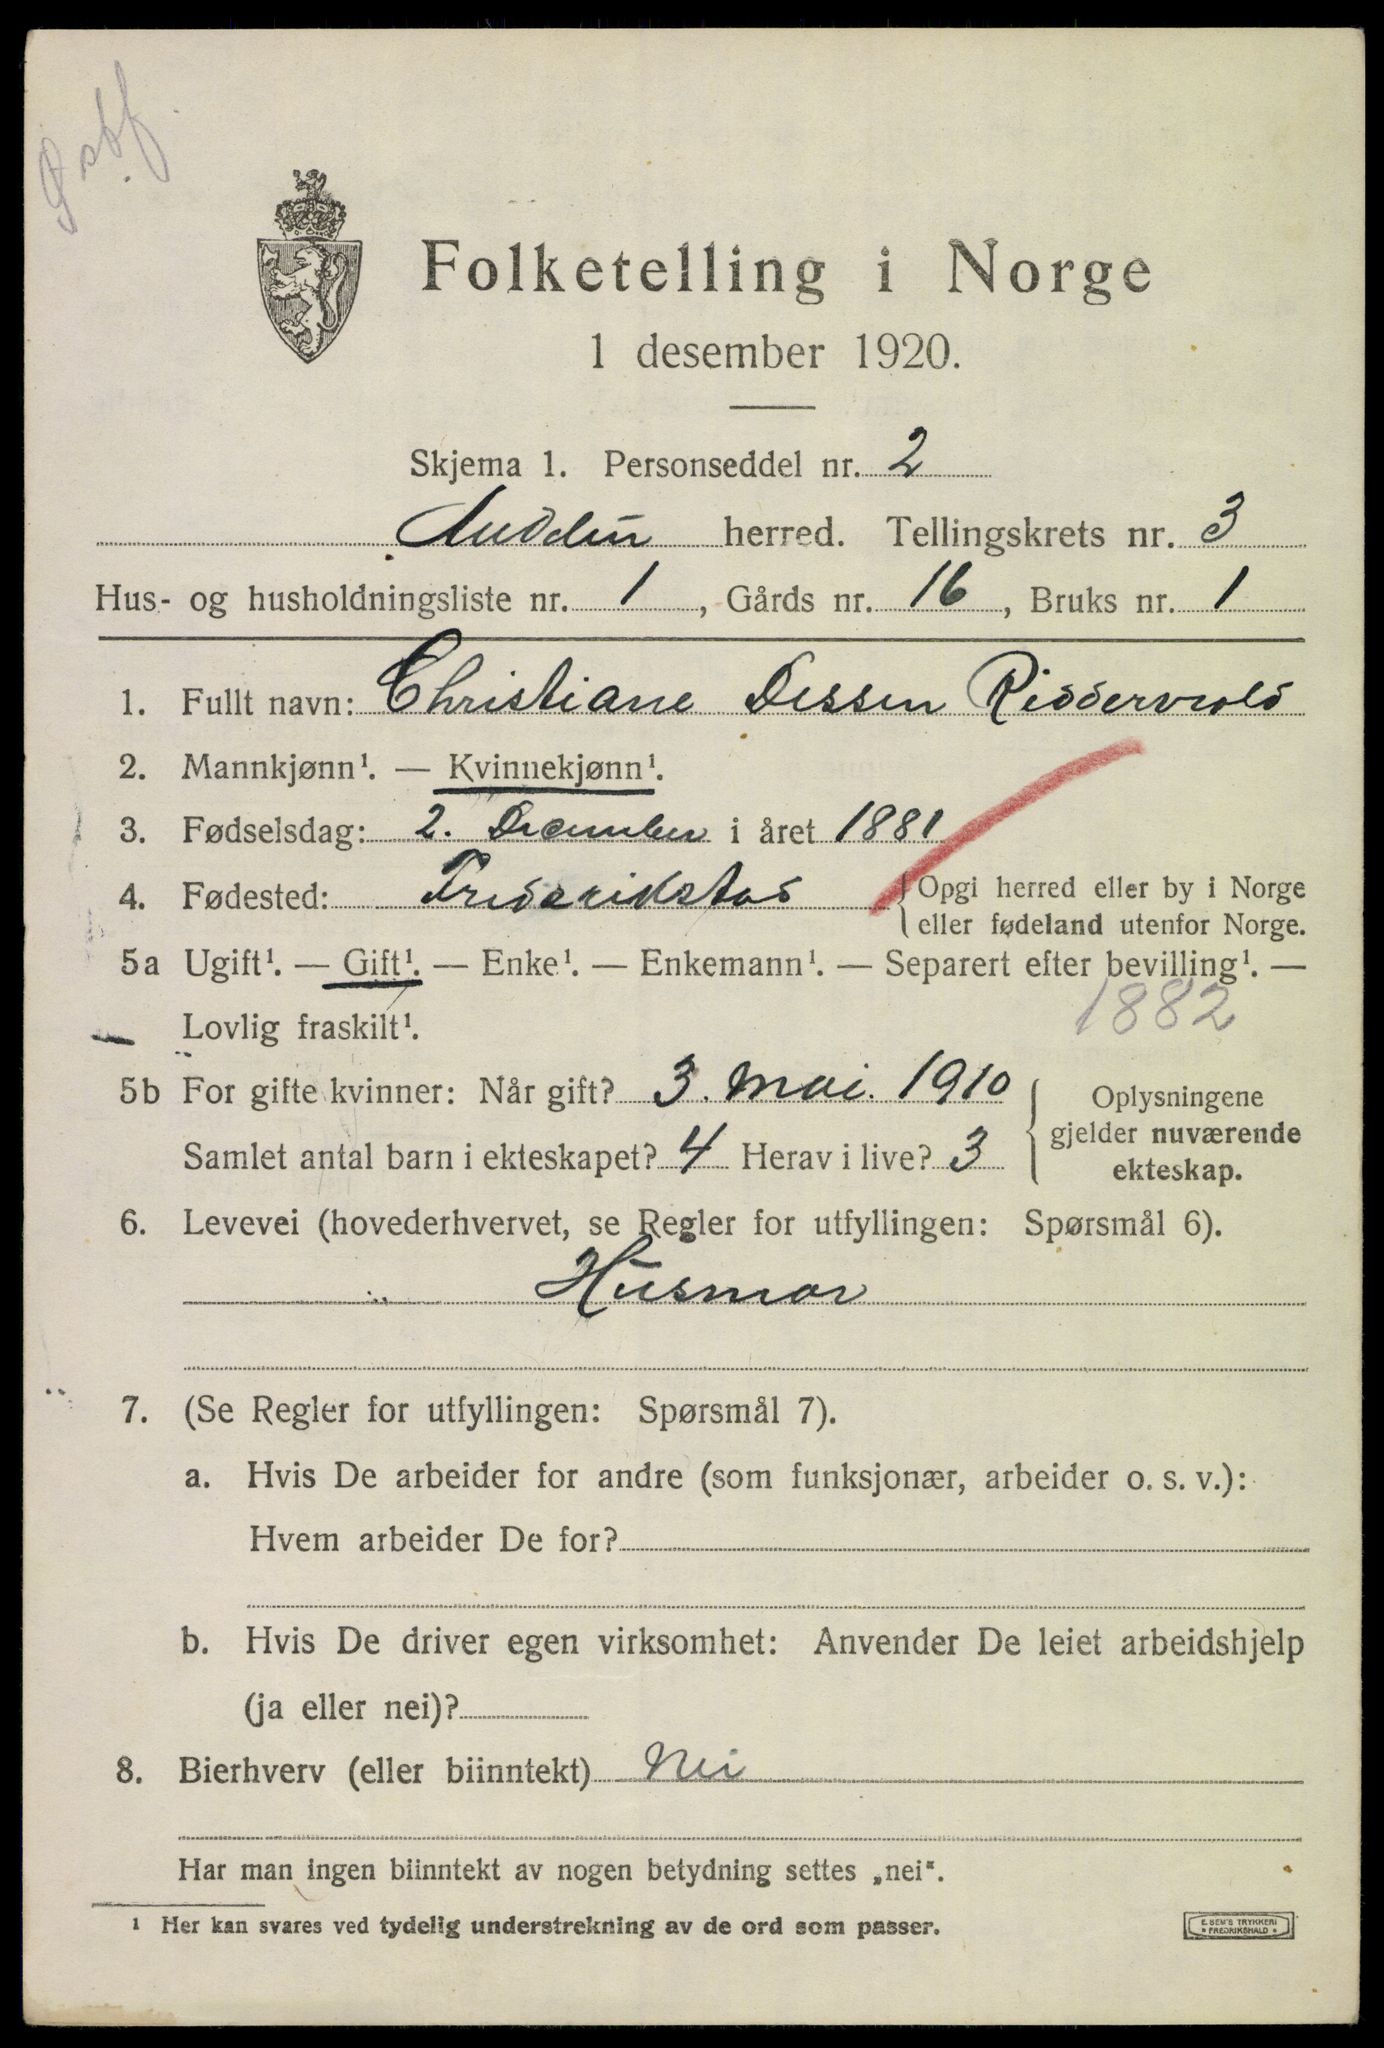 Østf.
Folketelling i Norge
1 desember 1920.
Skjema 1. Personseddel nr. 2
herred. Tellingskrets nr. 3
Hus- og husholdningsliste nr. 1, Gårds nr. 16, Bruks nr. 1
1. Fullt navn: Christiane Dessen Riddervold
2. Mannkjønn¹. — Kvinnekjønn¹.
3. Fødselsdag: 2. December i året 1881
4. Fødested: Frederikstad { Opgi herred eller by i Norge
eller fødeland utenfor Norge.
5a Ugift¹. — Gift¹. — Enke¹. — Enkemann¹. — Separert efter bevilling¹. —
1882
Lovlig fraskilt¹.
5b For gifte kvinner: Når gift? 3. Mai. 1910 { Oplysningene
gjelder nuværende
Samlet antal barn i ekteskapet? 4 Herav i live? 3 ekteskap.
6. Levevei (hovederhvervet, se Regler for utfyllingen: Spørsmål 6).
Husmor
7. (Se Regler for utfyllingen: Spørsmål 7).
a. Hvis De arbeider for andre (som funksjonær, arbeider o. s. v.):
Hvem arbeider De for?
b. Hvis De driver egen virksomhet: Anvender De leiet arbeidshjelp
(ja eller nei)?
8. Bierhverv (eller biinntekt) Nei
Har man ingen biinntekt av nogen betydning settes „nei“.
¹ Her kan svares ved tydelig understrekning av de ord som passer.
E. SEM'S TRYKKERI
* FREDRIKSHALD *